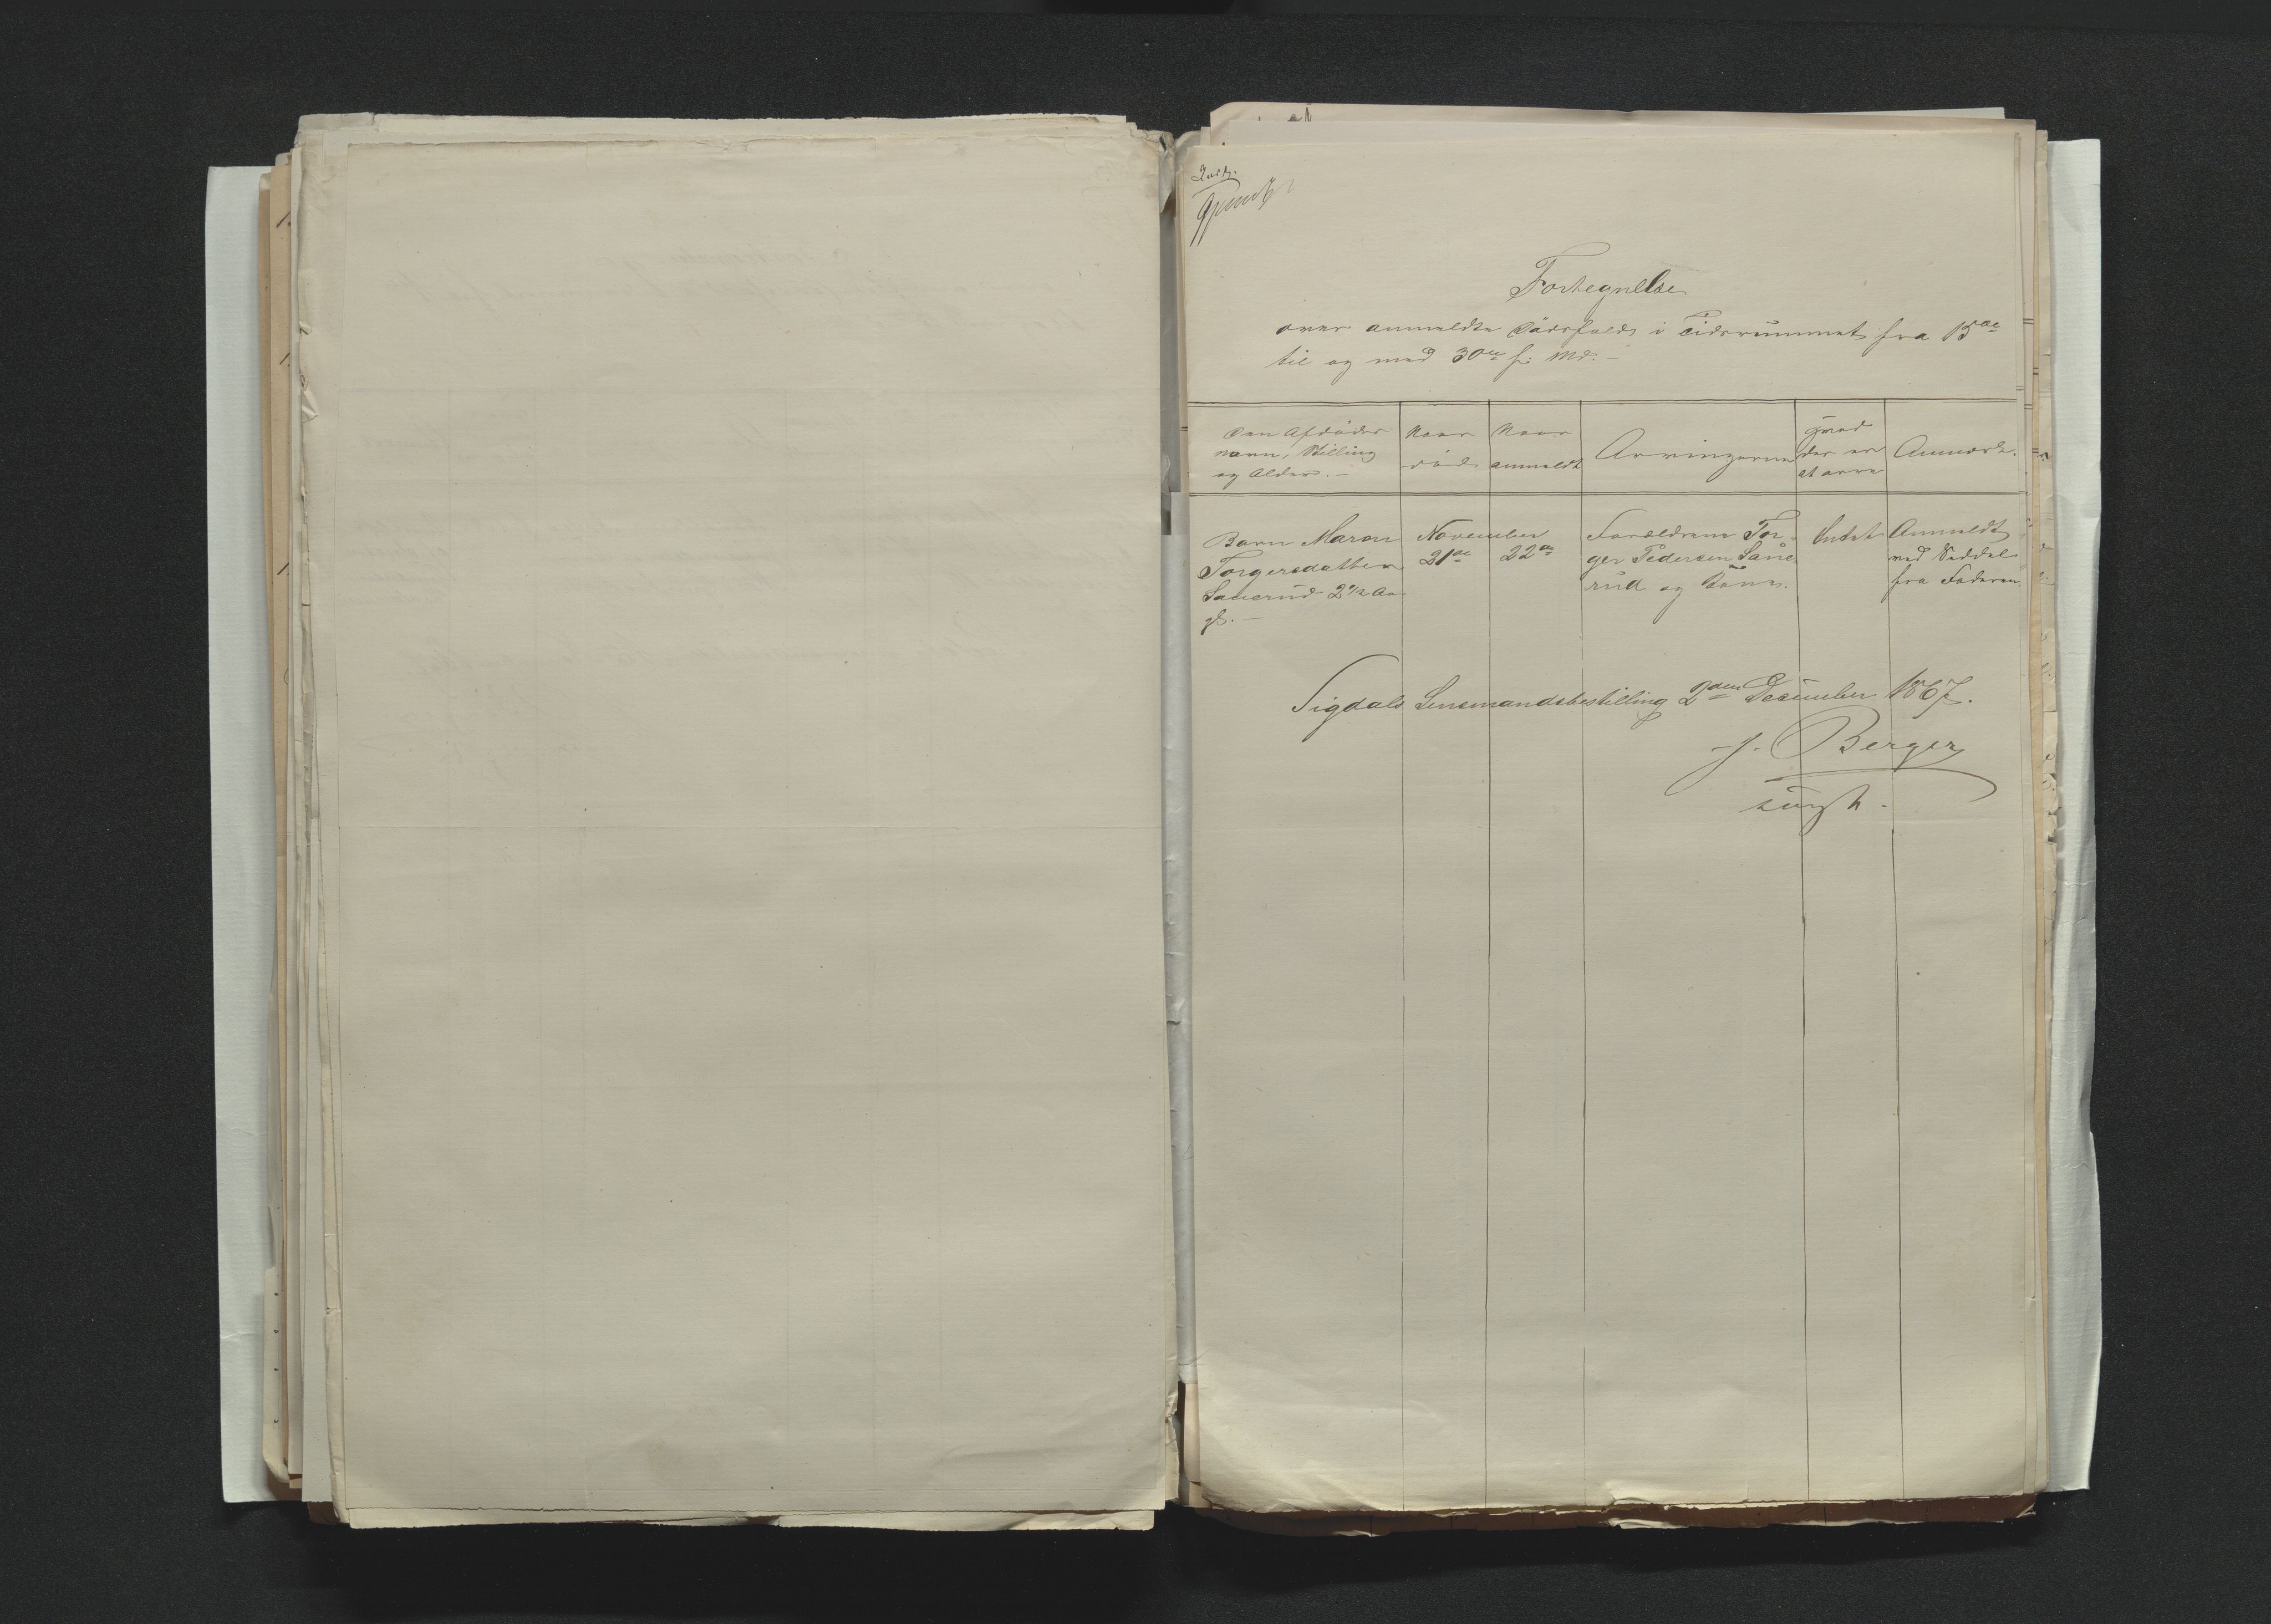 Fortegnelse
over anmeldte Dødsfald i Tidsrummet fra 15de
til og med 30te f. Md. –
Den Afdødes
Navn, Stilling
og Alder. –
Naar
død
Naar
anmeldt
Arvingerne
Hvad
der er
at arve
Anmærk.
Barn Maren
Torgersdatter
Sauerud 2 1/2 Aar
gl. –
November
21de
22de
Forældrene Tor-
ger Pedersen Saue-
rud og Kone.
Intet
Anmeldt
ved Seddel
fra Faderen
Sigdals Lensmandsbestilling 2den December 1867.
J. Berger